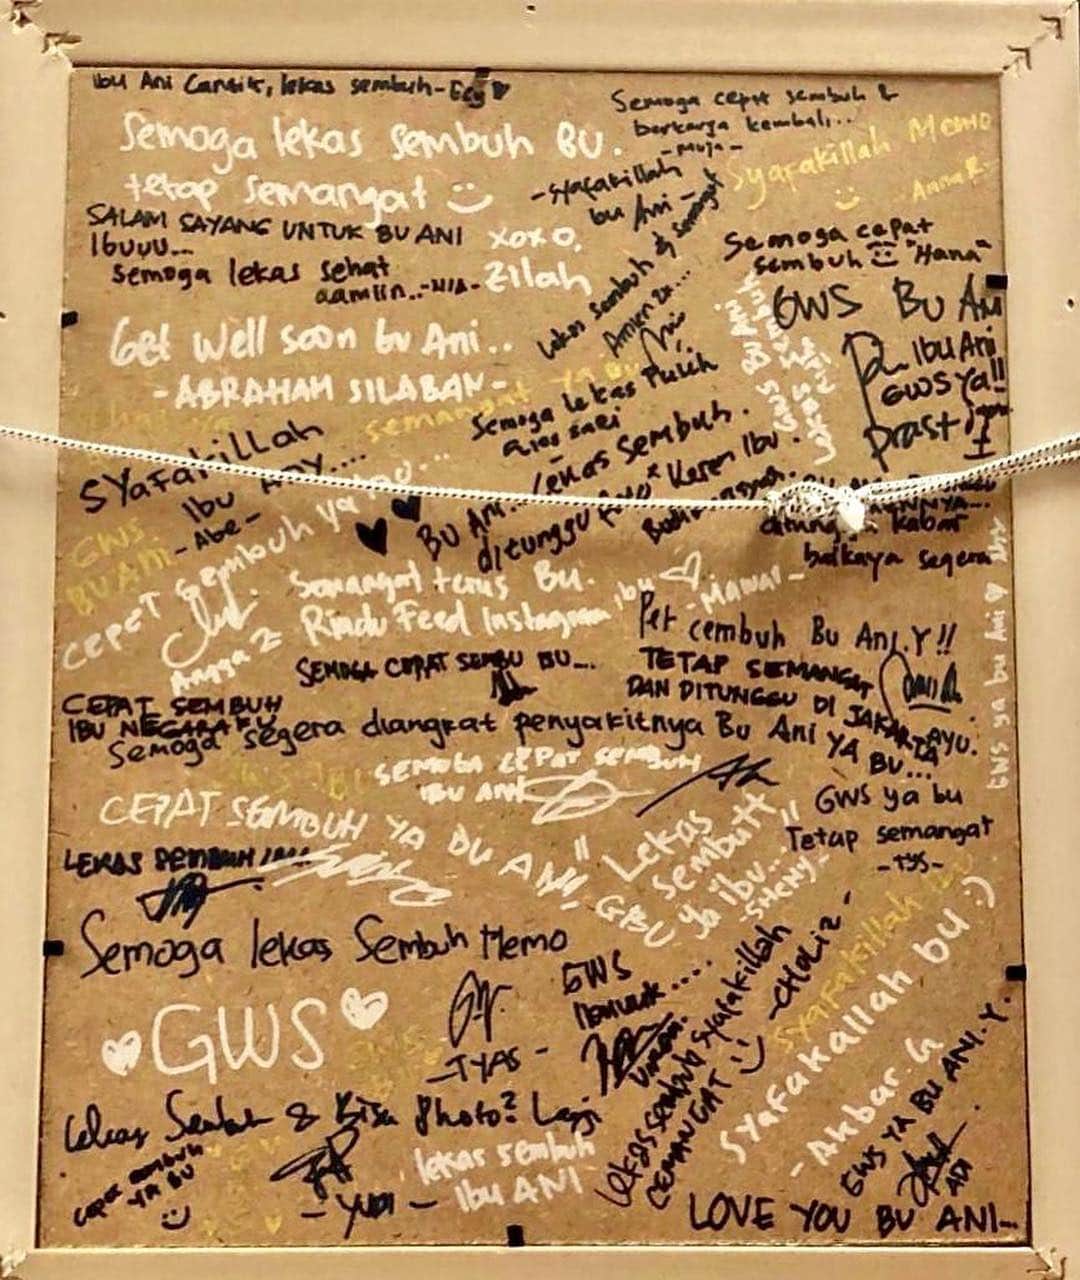 Ibu Ani Cantik, lekas sembuh - Ecy
Semoga cepat sembuh &
berkarya kembali...
- Muja -
Semoga lekas sembuh BU.
tetap semangat :)
xoxo,
Zilah
Syafakillah Memo
:)
Anna R.
- Syafakillah
bu Ani -
SALAM SAYANG UNTUK BU ANI
IBUUU...
semoga lekas sehat
aamiin..-NIA-
Semoga cepat
sembuh :) "Hana"
Lekas Sembuh & semangat
GWS Bu Ani
Get Well soon bu Ani..
- ABRAHAM SILABAN -
Ibu Ani
GWS Ya!!
Prast
semangat ya bu
Semoga lekas Pulih
SYafakillah
Ibu Any....
- Abe -
GWS
BU ANI
lekas Sembuh.
Bu Ani..
ditunggu
Keren Ibu.
kabar
baiknya segera
CEPAT SEMBUH ya
Angga 2
Semangat terus Bu.
Rindu Feed Instagram ibu
- Mawar -
Pet cembuh Bu Ani.Y!!
SEMOGA CEPAT SEMBU BU...
TETAP SEMANGAT
DAN DITUNGGU DI JAKARTA
YA BU...
GWS ya bu Ani
CEPAT SEMBUH
IBU NEGARAKU
Semoga segera diangkat penyakitnya Bu Ani
AYU.
SEMOGA CEPAT SEMBUH
IBU ANI
GWS ya bu
Tetap semangat
- TYS -
CEPAT SEMBUH YA BU ANI!!
GBU
LEKAS SEMBUH
Lekas
Sembuh
Ya ibu...
- SHENY -
Semoga lekas Sembuh Memo
GWS
- TYAS -
GWS
Ibuuu....
Lekas sembuh Syafakillah
CEMANGAT :)
- CHOLIZ -
Syafakillah bu
Syafakallah bu :)
- Akbar.G
Lekas Sembuh & Bisa Photo2 Lagi
- YUDI -
cepat sembuh
YA BU
:)
lekas sembuh
Ibu ANI
GWS YA BU ANI.Y.
ADI
LOVE YOU BU ANI...